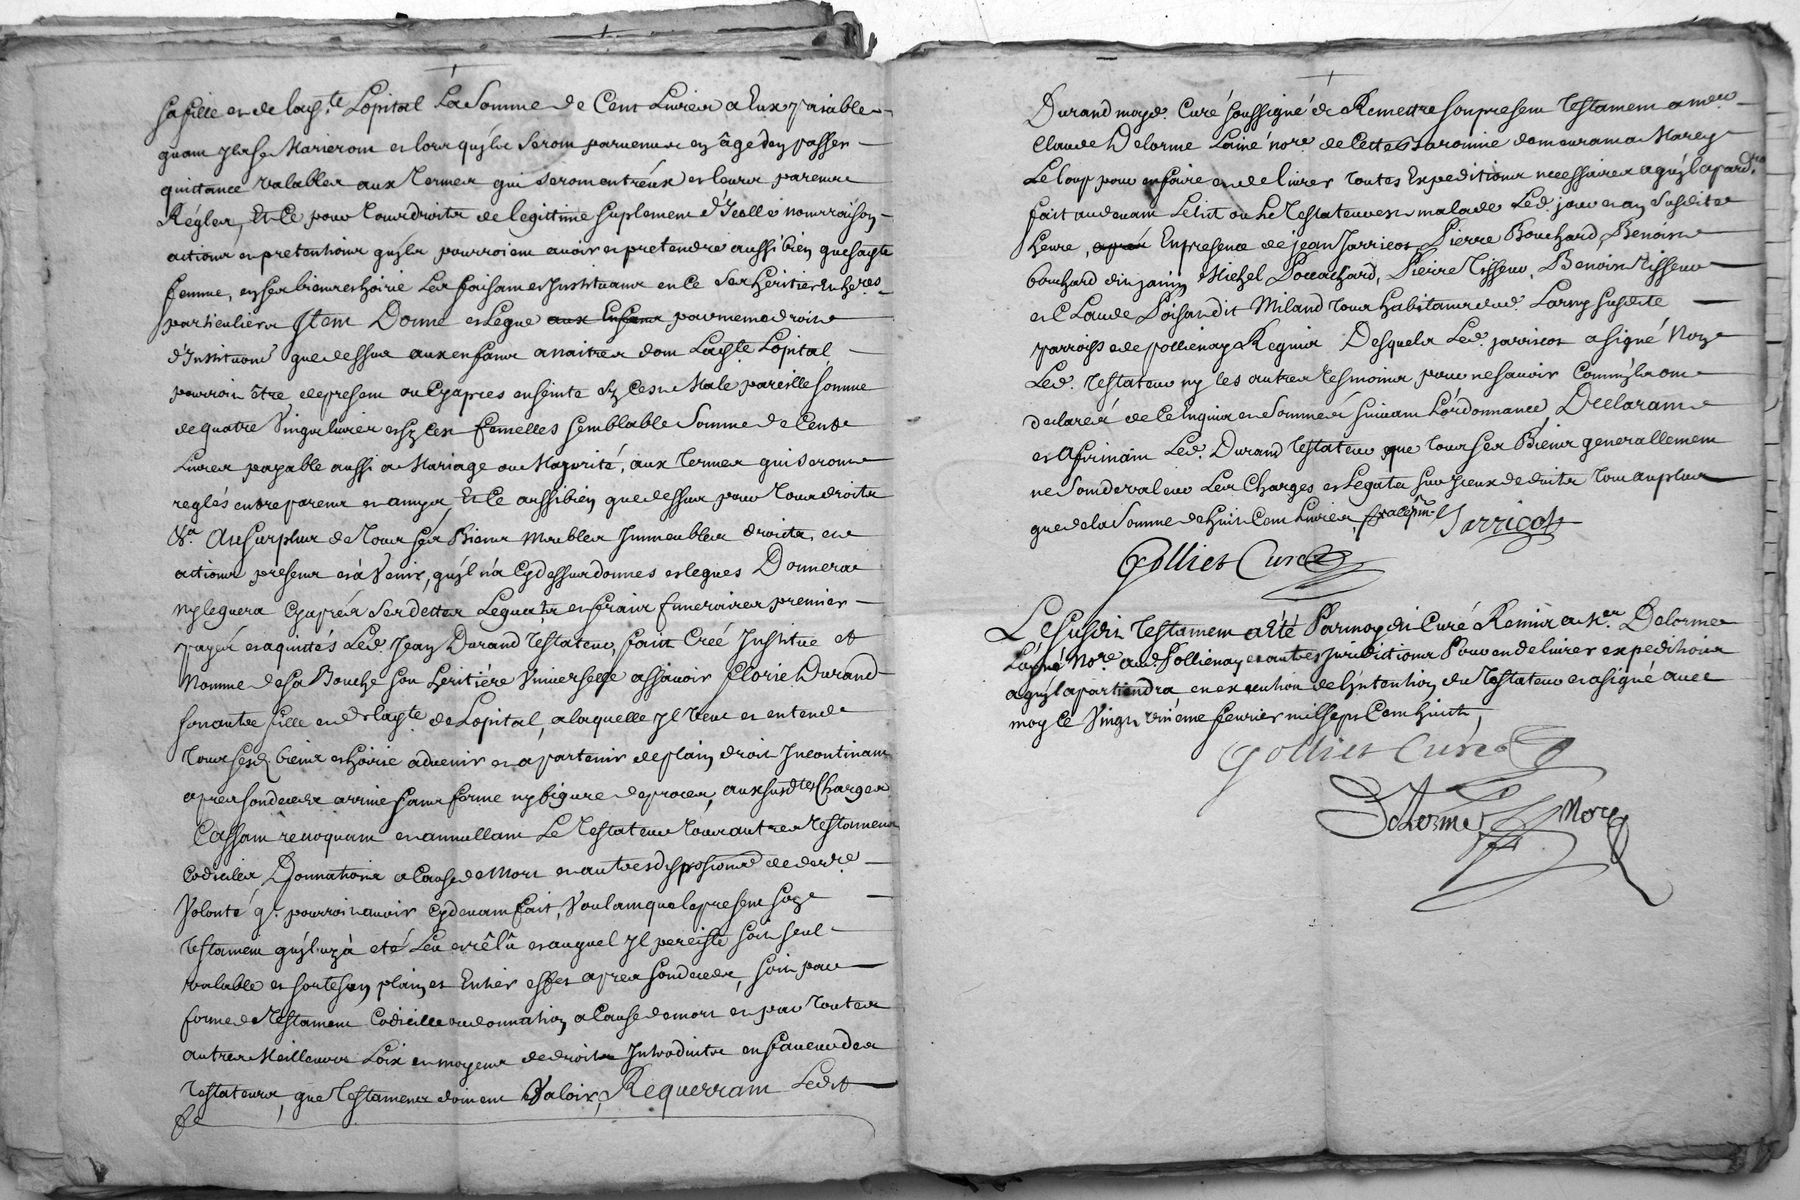 sa fille et de lad.te Lopital La Somme de Cent Livres a Eux paiable
quant yls se Marieront et lors quyls seront parvenus en âge den passer
quittance valables aux termes qui seront entréux et leurs parents
Régles, Et Ce pour tous droits de legittime suplement d'Jcelle noms raisons
actions et pretentions quyls pourroient avoir et pretendre aussi bien que sadte
femme, en ses biens et hoirie Les faisant et Jnstituant en Ce Ses héritiers
particuliers Jtem Donne et Legue aux Enfans par meme droit
d'Jnstitution que dessus aux enfans a naitre dont Ladte Lopital
pourroit être de present ou Cyapres enseinte Sy Cest Male pareille somme
de quatre Vingts livres et sy Cest femelles semblable Somme de Cent
Livres payable aussi a Mariage ou Majorité, aux termes qui seront
reglés entre parens et amys Et Ce aussi bien que dessus pour tous droits
Au surplus de tous ses Biens Meubles Jmmeubles droits et
actions presens et à Venir, quyl n'a Cy dessus donnes et legues Donnera
ny leguera Cyaprés Ses dettes Legats et fraix funeraires premier
payés et aquittés Led. Jean Durand Testateur, fait Créé Jnstitue et
Nomme de sa Bouche son héritiére Vniverselle assavoir florie Durand
son autre fille et de ladte de Lopital, a laquelle yl veut et entend
tous sesd biens et hoirie advenir et apartenir de plain droit Jncontinant
apres son deces arrivé sans forme ny figure de procès, aux susdtes Charges
Cassant revoquant et annullant Le Testateur tous autres Testamens
Codiciles Donnations a Cause de Mort et autres disposions de derre
Volonté q. pourroit avoir Cy devant fait, Voulant que le present son
Testament quyl luy à eté Leu et rêlû et auquel yl persiste soit seul
valable et sorte son plain et Entier effet apres son deces, soit par
forme de Testament Codicille ou donnation a Cause de mort et par toutes
autres Meilleurs Loix et moyens de droits Jntroduits en faveur des
Testateurs, que Testamens doivent Valoir, Requerrant Ledit
Durand moyd. Curé soussigné de Remettre son present Testament a mre
Claude Delorme Lainé nore. de Cette Baronnie demeurant a Marcy
Le loup pour en faire et delivrer toutes Expeditions necessaires a quyl apard.ra
fait au devant Le lit ou Le Testateur est malade Led. jour et an Susdits
heure, aprés En presence de jean Jarricot, Pierre Bouchard, Benoist
bouchard dit janin Michel Bouchard, Pierre Tisseur, Benoist Tisseur
et Claude Loisan dit Miland tous habitans dud. Larny susdite
parroisse de pollienay Requis Desquels Led. jarricot a signé Non
Led. Testateur ny les autres tesmoins pour ne savoir Comm'yls ont
declaré de Ce Enquis et Sommés suivant Lordonnance, Declarant
et afirmant Led. Durand Testateur que tous ses Biens generallement
ne sont de valeur Les Charges et Legats sur yceux deduits tout au plus
que de la Somme de huit Cent Livres,
Jarricot
Gollier Curé
Le susdit Testament a eté Par moydit Curé Remis a Sr. Delorme
Layné Nore. aud Pollienay et autres juridictions Pour en delivrer expeditions
a quyl apartiendra en execution de l'intention du Testateur et a signé avec
moy Le Vingt unieme fevrier mil sept Cent huit,
Gollier Curé
Delorme Nore